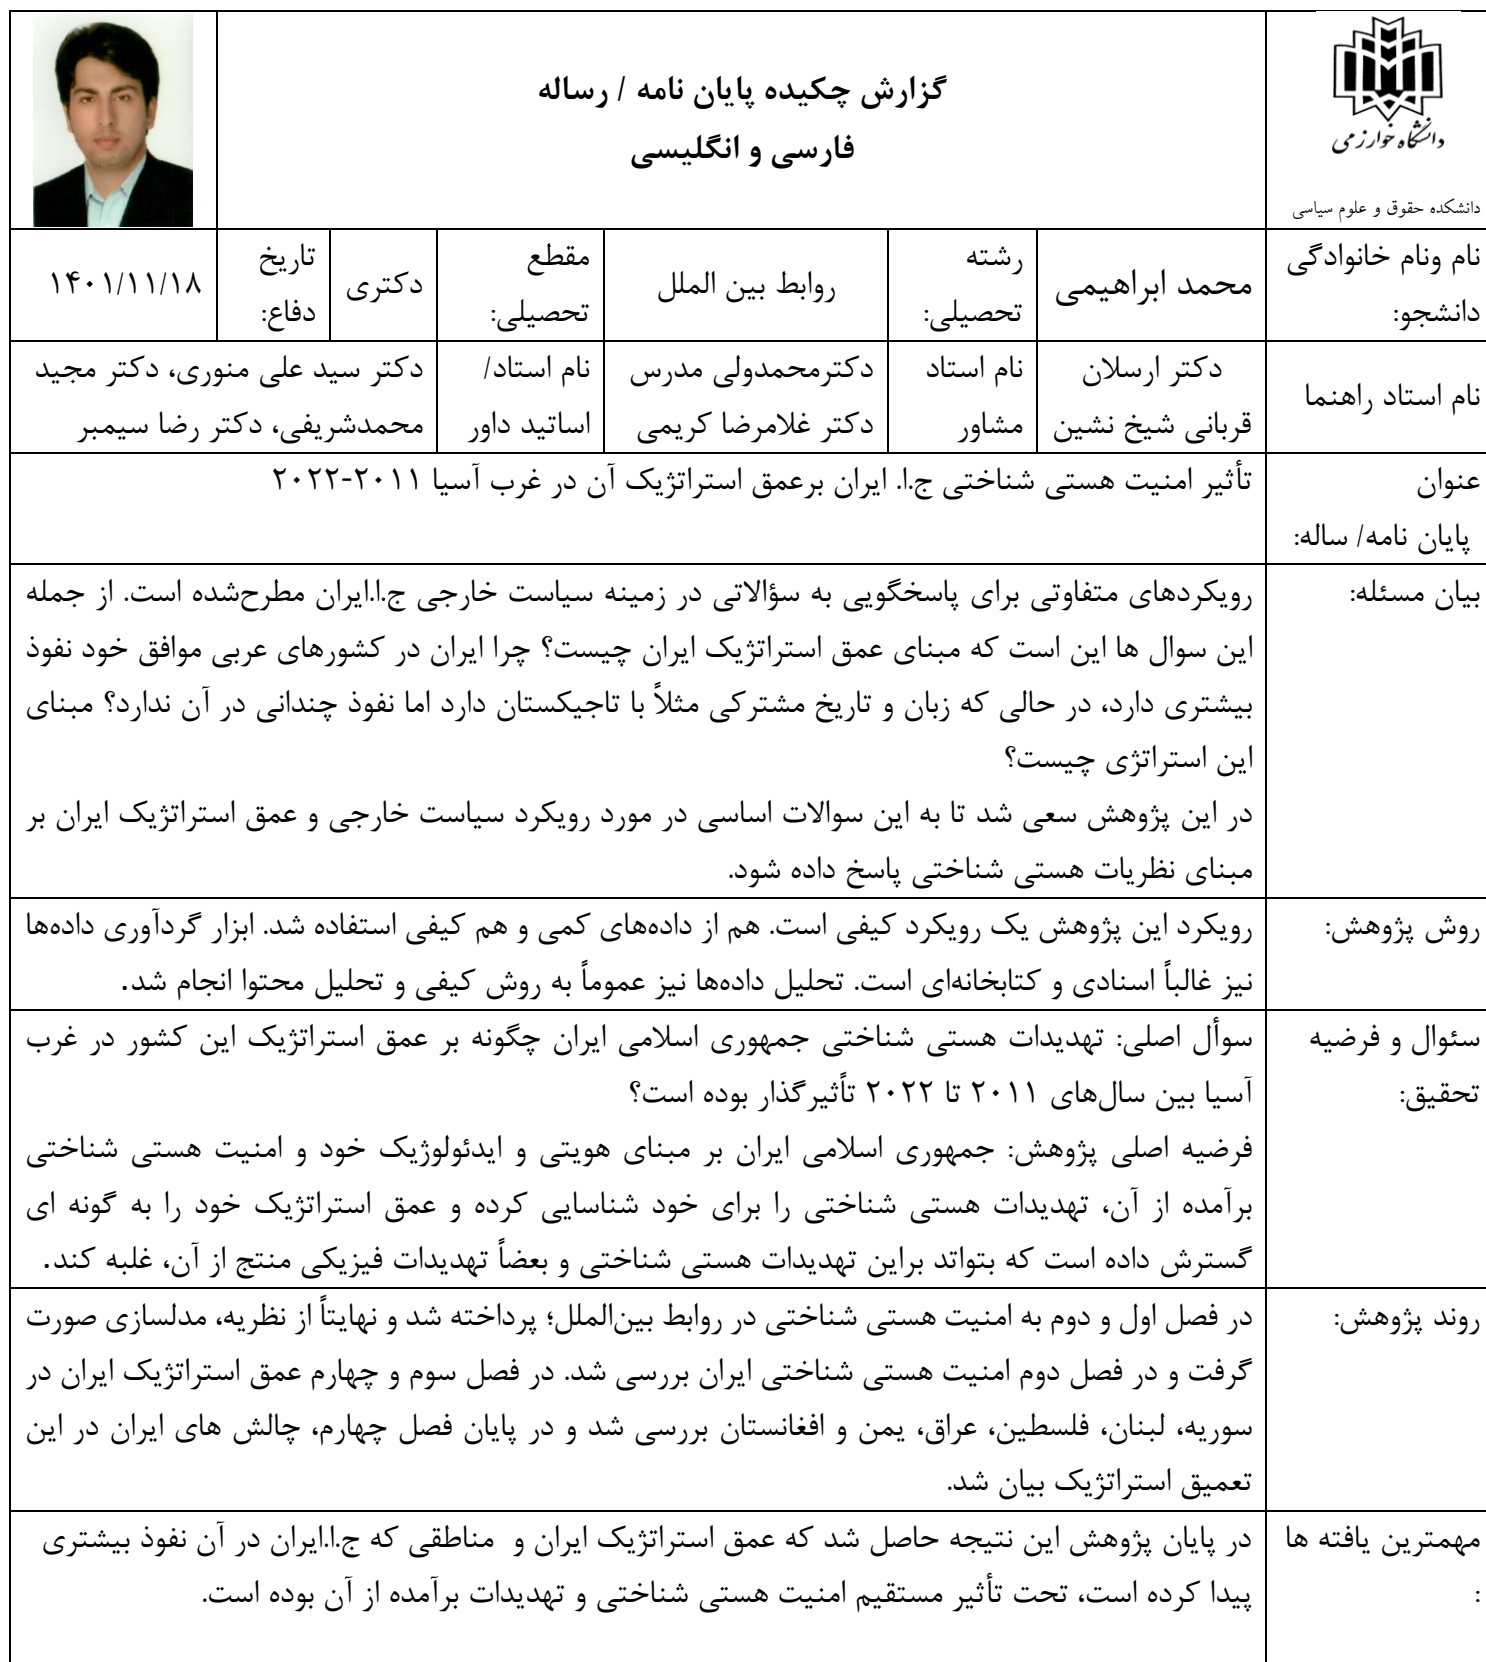 گزارش چکیده پایان نامه / رساله
فارسی و انگلیسی
دانشگاه خوارزمی
دانشکده حقوق و علوم سیاسی
نام ونام خانوادگی
دانشجو:
محمد ابراهیمی
رشته
تحصیلی:
روابط بین الملل
مقطع
تحصیلی:
دکتری
تاریخ
دفاع:
۱۴۰۱/۱۱/۱۸
نام استاد راهنما
دکتر ارسلان
قربانی شیخ نشین
نام استاد
مشاور
دکترمحمدولی مدرس
دکتر غلامرضا کریمی
نام استاد/
اساتید داور
دکتر سید علی منوری، دکتر مجید
محمدشریفی، دکتر رضا سیمبر
عنوان
پایان نامه/ ساله:
تأثیر امنیت هستی شناختی ج.ا. ایران برعمق استراتژیک آن در غرب آسیا ۲۰۱۱-۲۰۲۲
بیان مسئله:
رویکردهای متفاوتی برای پاسخگویی به سؤالاتی در زمینه سیاست خارجی ج.ا.ایران مطرح‌شده است. از جمله
این سوال ها این است که مبنای عمق استراتژیک ایران چیست؟ چرا ایران در کشورهای عربی موافق خود نفوذ
بیشتری دارد، در حالی که زبان و تاریخ مشترکی مثلاً با تاجیکستان دارد اما نفوذ چندانی در آن ندارد؟ مبنای
این استراتژی چیست؟
در این پژوهش سعی شد تا به این سوالات اساسی در مورد رویکرد سیاست خارجی و عمق استراتژیک ایران بر
مبنای نظریات هستی شناختی پاسخ داده شود.
روش پژوهش:
رویکرد این پژوهش یک رویکرد کیفی است. هم از داده‌های کمی و هم کیفی استفاده شد. ابزار گردآوری داده‌ها
نیز غالباً اسنادی و کتابخانه‌ای است. تحلیل داده‌ها نیز عموماً به روش کیفی و تحلیل محتوا انجام شد.
سئوال و فرضیه
تحقیق:
سوأل اصلی: تهدیدات هستی شناختی جمهوری اسلامی ایران چگونه بر عمق استراتژیک این کشور در غرب
آسیا بین سال‌های ۲۰۱۱ تا ۲۰۲۲ تأثیرگذار بوده است؟
فرضیه اصلی پژوهش: جمهوری اسلامی ایران بر مبنای هویتی و ایدئولوژیک خود و امنیت هستی شناختی
برآمده از آن، تهدیدات هستی شناختی را برای خود شناسایی کرده و عمق استراتژیک خود را به گونه ای
گسترش داده است که بتواند براین تهدیدات هستی شناختی و بعضاً تهدیدات فیزیکی منتج از آن، غلبه کند.
روند پژوهش:
در فصل اول و دوم به امنیت هستی شناختی در روابط بین‌الملل؛ پرداخته شد و نهایتاً از نظریه، مدلسازی صورت
گرفت و در فصل دوم امنیت هستی شناختی ایران بررسی شد. در فصل سوم و چهارم عمق استراتژیک ایران در
سوریه، لبنان، فلسطین، عراق، یمن و افغانستان بررسی شد و در پایان فصل چهارم، چالش های ایران در این
تعمیق استراتژیک بیان شد.
مهمترین یافته ها
:
در پایان پژوهش این نتیجه حاصل شد که عمق استراتژیک ایران و مناطقی که ج.ا.ایران در آن نفوذ بیشتری
پیدا کرده است، تحت تأثیر مستقیم امنیت هستی شناختی و تهدیدات برآمده از آن بوده است.